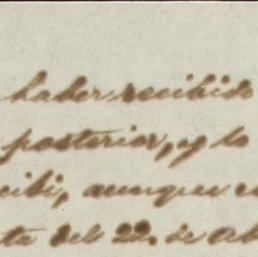 haber recibido
posterior, y lo
cibi, aunque
del 22. de Ab